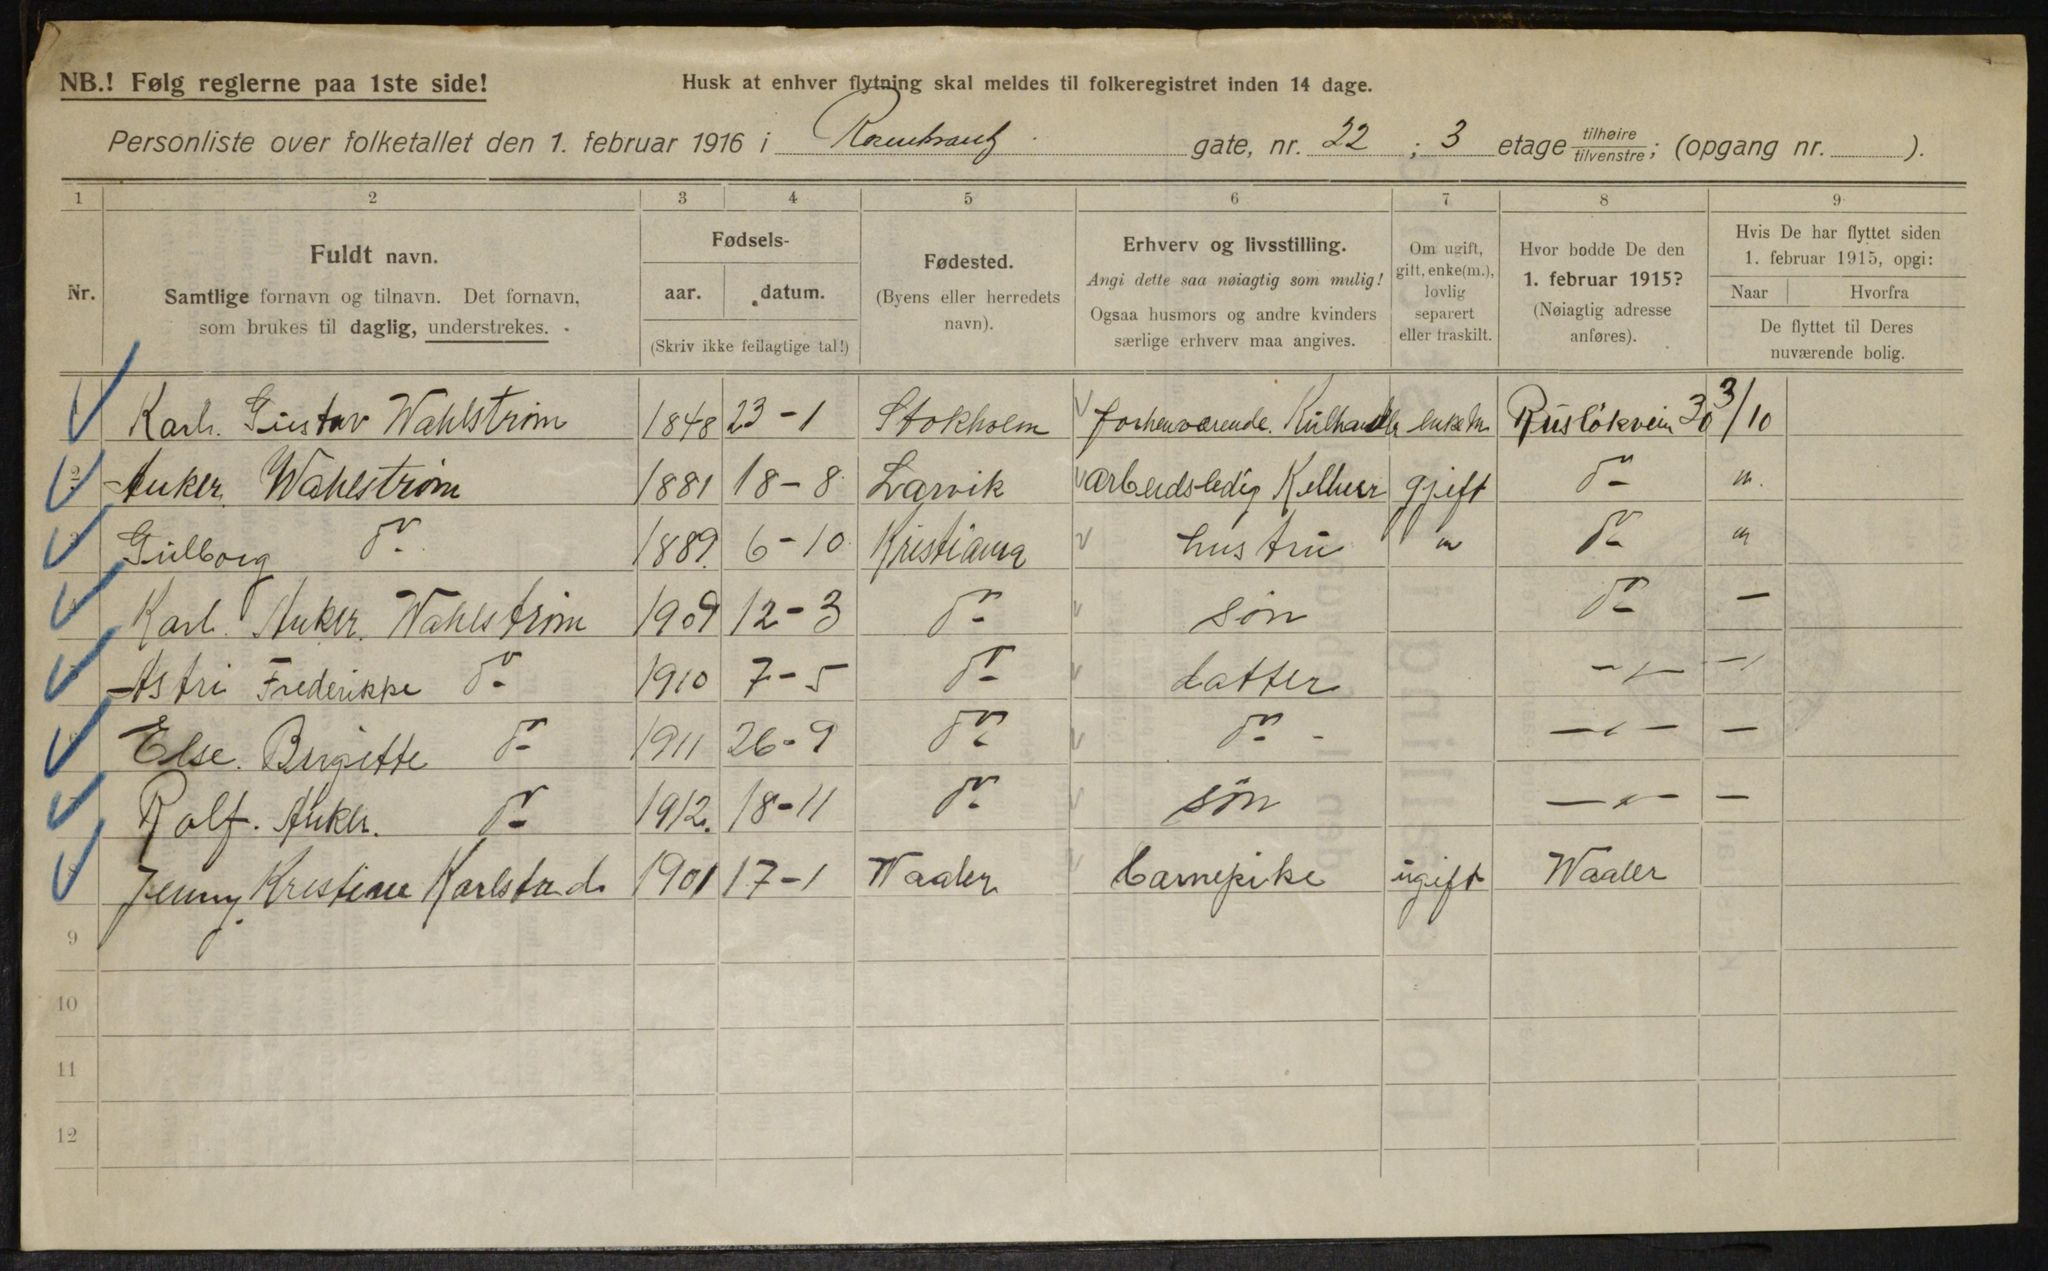 NB.! Følg reglerne paa 1ste side!
Husk at enhver flytning skal meldes til folkeregistret inden 14 dage.
Personliste over folketallet den 1. februar 1916 i Rosenkrantz gate, nr. 22 ; 3 etage tilhøire/tilvenstre; (opgang nr. ).
1 2 3 4 5 6 7 8 9
Nr.
Fuldt navn.
Samtlige fornavn og tilnavn. Det fornavn,
som brukes til daglig, understrekes.
Fødsels-
aar. datum.
(Skriv ikke feilagtige tal!)
Fødested.
(Byens eller herredets
navn).
Erhverv og livsstilling.
Angi dette saa nøiagtig som mulig!
Ogsaa husmors og andre kvinders
særlige erhverv maa angives.
Om ugift,
gift, enke(m.),
lovlig
separert
eller fraskilt.
Hvor bodde De den
1. februar 1915?
(Nøiagtig adresse
anføres).
Hvis De har flyttet siden
1. februar 1915, opgi:
Naar Hvorfra
De flyttet til Deres
nuværende bolig.
Karl. Gustav Wahlstrøm 1848 23-1 Stokholm forhenværende. Kulhandler enkem Rusløkvein 30 3/10
2 Anker. Wahlstrøm 1881 18-8 Larvik arbeidsledig Kellner gjift do "
Gulborg do 1889. 6-10 Kristiania hustru " do "
Karl. Anker. Wahlstrøm 1909 12-3 do søn do —
Astri Frederikke do 1910 7-5 do datter -"- -"
Else. Birgitte do 1911 26-9 do do - —"— —
Rolf. Anker. do 1912. 18-11 do søn —"— —
Jenny Kristine Karlstad. 1901 17-1 Waaler Barnepike ugift Waaler
9
10
11
12